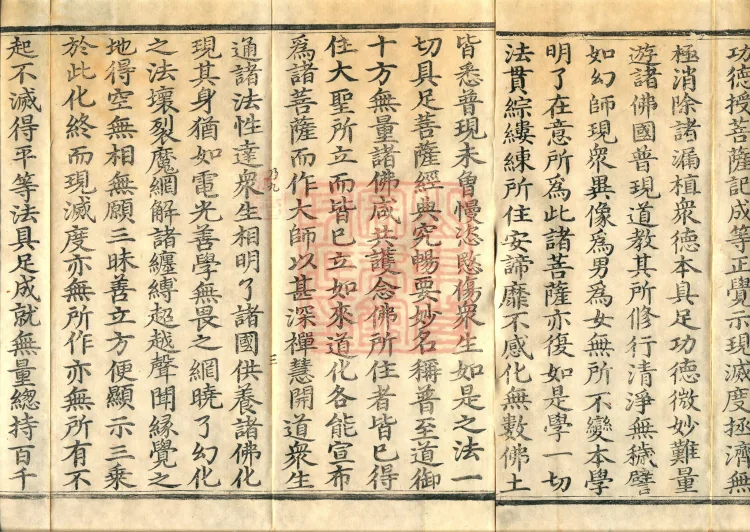 功德授菩薩記成等正覺示現滅度拯濟無
極消除諸漏植衆德本具足功德微妙難量
遊諸佛國普現道教其所修行清淨無穢譬
如幻師現衆異像爲男爲女無所不變本學
明了在意所爲此諸菩薩亦復如是學一切
法貫綜縷練所住安諦靡不感化無數佛土
皆悉普現未曾慢恣愍傷衆生如是之法一
切具足菩薩經典究暢要妙名稱普至道御
十方無量諸佛咸共護念佛所住者皆已得
住大聖所立而皆已立如來道化各能宣布
爲諸菩薩而作大師以甚深禪慧開道衆生
三
通諸法性達衆生相明了諸國供養諸佛化
現其身猶如電光善學無畏之網曉了幻化
之法壞裂魔網解諸纏縛超越聲聞緣覺之
地得空無相無願三昧善立方便顯示三乘
於此化終而現滅度亦無所作亦無所有不
起不滅得平等法具足成就無量總持百千